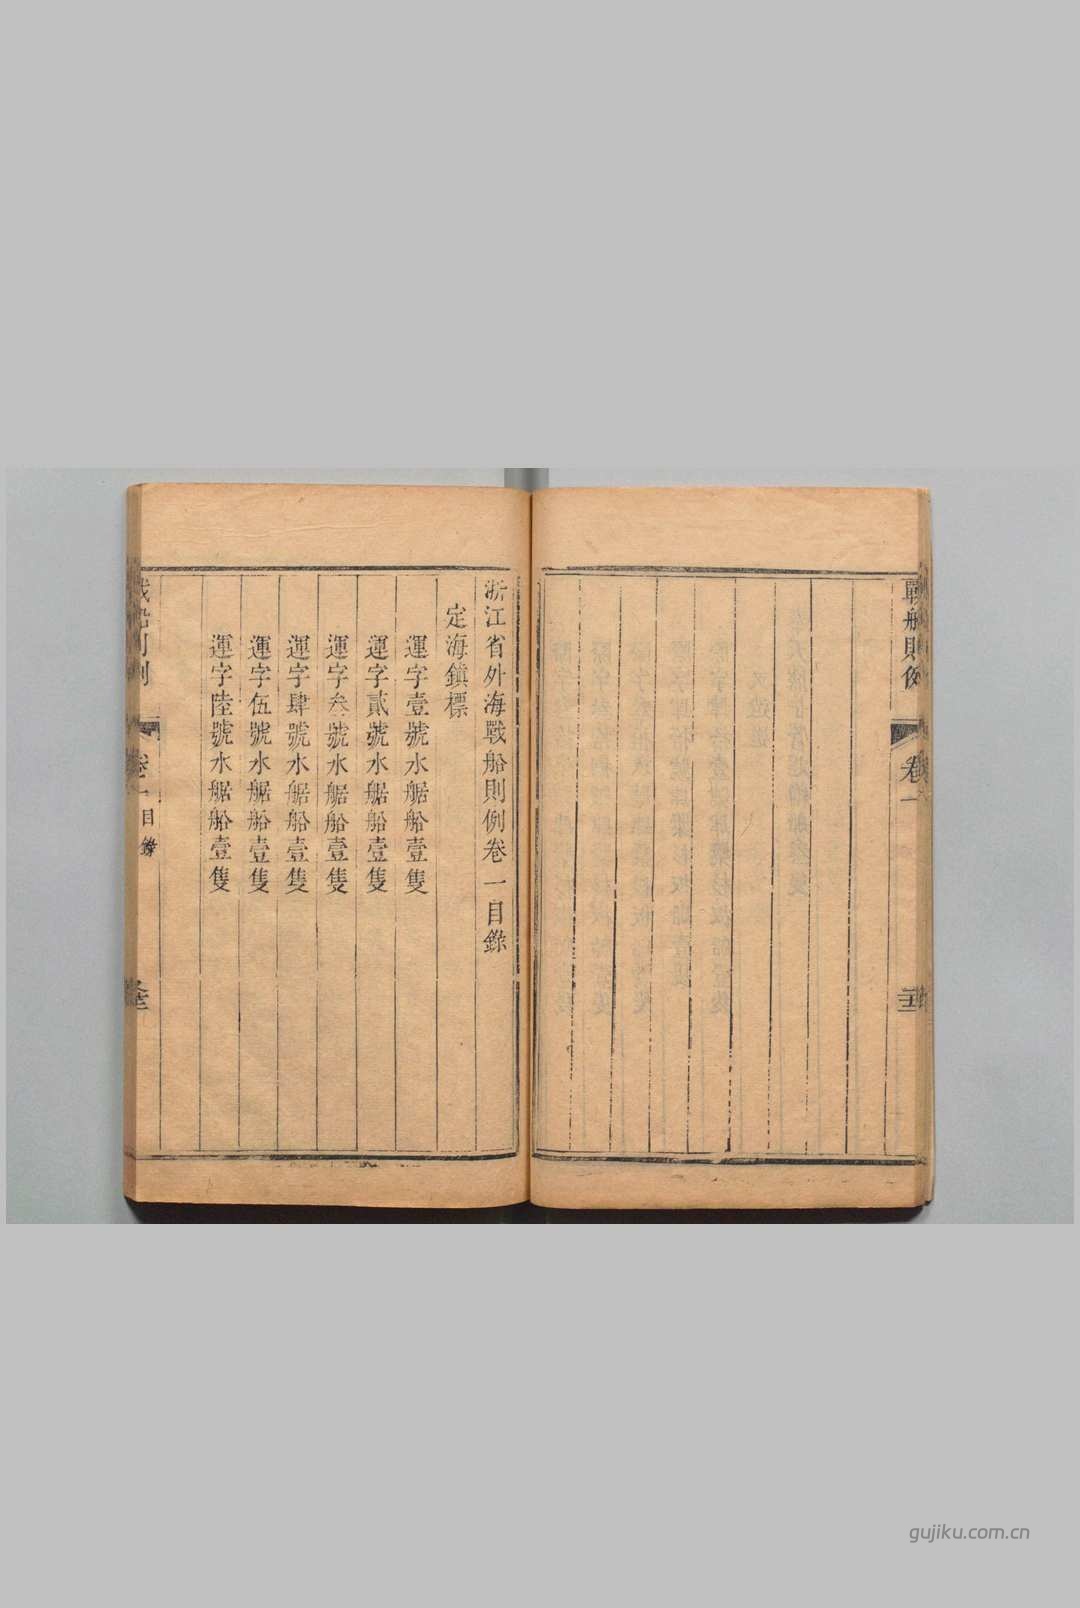 戰船則例
卷一
浙江省外海戰船則例卷一目錄
定海鎮標
運字壹號水艍船壹隻
運字貳號水艍船壹隻
運字叁號水艍船壹隻
運字肆號水艍船壹隻
運字伍號水艍船壹隻
運字陸號水艍船壹隻
卷一目錄
gujiku.com.cn